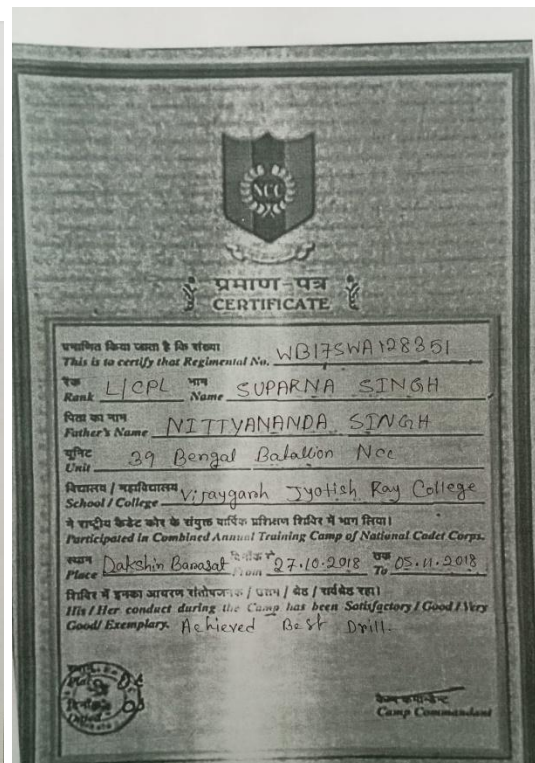 NCC
प्रमाण-पत्र
CERTIFICATE
प्रमाणित किया जाता है कि संख्या
This is to certify that Regimental No. WB17SWA128351
रैंक L/CPL नाम SUPARNA SINGH
Rank Name
पिता का नाम
Father's Name NITTYANANDA SINGH
यूनिट
Unit 39 Bengal Batallion Ncc
विद्यालय / महाविद्यालय
School / College Vijaygarh Jyotish Ray College
ने राष्ट्रीय कैडेट कोर के संयुक्त वार्षिक प्रशिक्षण शिविर में भाग लिया।
Participated in Combined Annual Training Camp of National Cadet Corps.
स्थान दिनाँक से तक
Place Dakshin Barasat From 27.10.2018 To 05.11.2018
शिविर में इनका आचरण संतोषजनक / उत्तम / श्रेष्ठ / सर्वश्रेष्ठ रहा।
His / Her conduct during the Camp has been Satisfactory / Good / Very
Good / Exemplary. Achieved Best Drill.
Place
दिनाँक
Dated
Camp Commandant